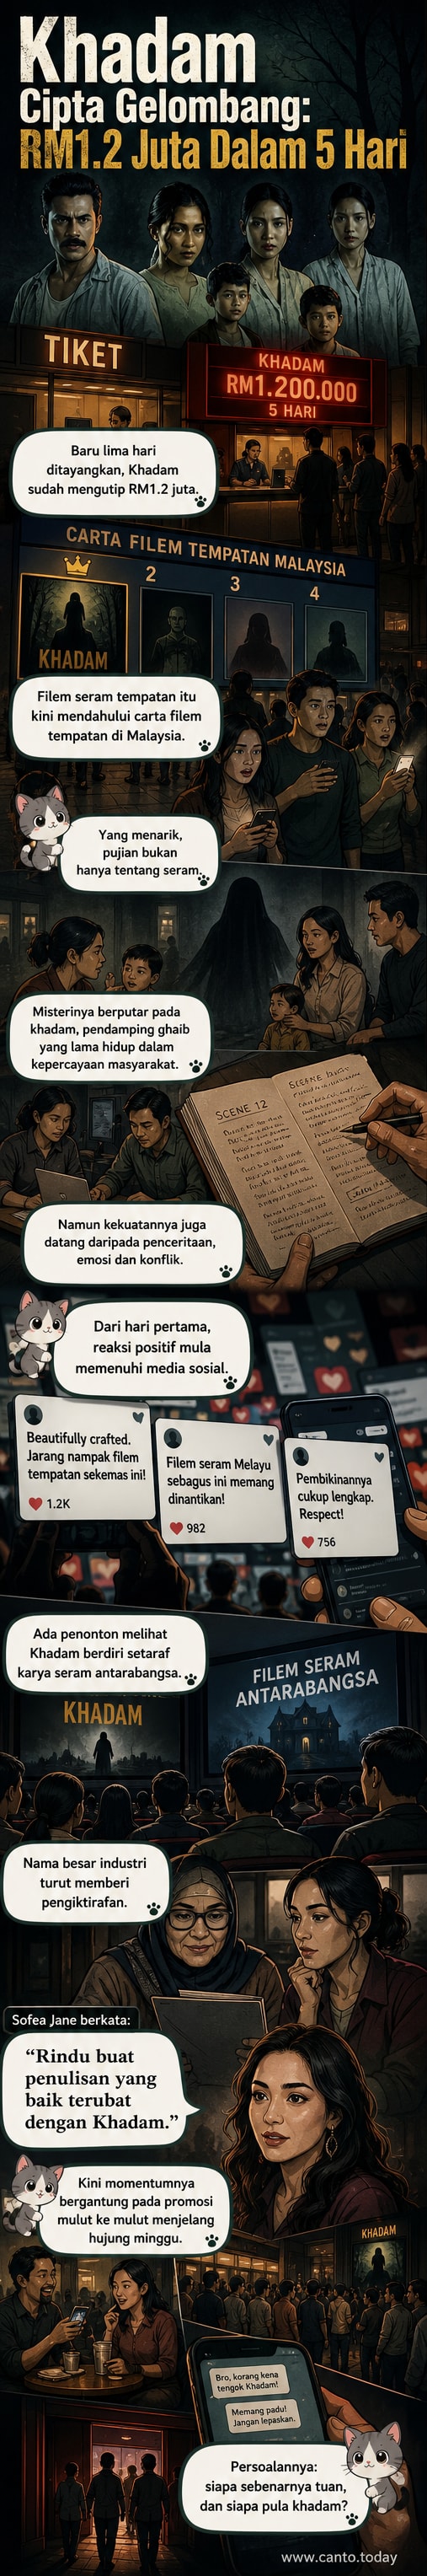 Khadam
Cipta Gelombang:
RM1.2 Juta Dalam 5 Hari
TIKET
KHADAM
RM1.200.000
5 HARI
Baru lima hari
ditayangkan, Khadam
sudah mengutip RM1.2 juta.
CARTA FILEM TEMPATAN MALAYSIA
2
3
4
KHADAM
Filem seram tempatan itu
kini mendahului carta filem
tempatan di Malaysia.
Yang menarik,
pujian bukan
hanya tentang seram.
Misterinya berputar pada
khadam, pendamping ghaib
yang lama hidup dalam
kepercayaan masyarakat.
SCENE 12
Namun kekuatannya juga
datang daripada penceritaan,
emosi dan konflik.
Dari hari pertama,
reaksi positif mula
memenuhi media sosial.
Beautifully crafted.
Jarang nampak filem
tempatan sekemas ini!
1.2K
Filem seram Melayu
sebagus ini memang
dinantikan!
982
Pembikinannya
cukup lengkap.
Respect!
756
Ada penonton melihat
Khadam berdiri setaraf
karya seram antarabangsa.
KHADAM
FILEM SERAM
ANTARABANGSA
Nama besar industri
turut memberi
pengiktirafan.
Sofea Jane berkata:
“Rindu buat
penulisan yang
baik terubat
dengan Khadam.”
Kini momentumnya
bergantung pada promosi
mulut ke mulut menjelang
hujung minggu.
KHADAM
Bro, korang kena
tengok Khadam!
Memang padu!
Jangan lepaskan.
Persoalannya:
siapa sebenarnya tuan,
dan siapa pula khadam?
www.canto.today